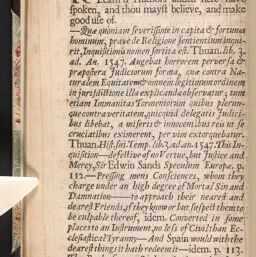 Learn'd Authors added here have
spoken, and thou mayst believe, and make
good use of.
—Quæ quoniam severissime in capita & fortunas
hominum, prave de Religione sentientium inqui-
rit, Inquisitionis nomen sortita est. Thuan. lib. 3.
ad. An. 1547. Augebat horrorem perversa &
præpostera Judiciorum forma, quæ contra Na-
turalem æquitatem & omnem legitimum ordinem
in jurisdictione illa explicanda observatur, tum
etiam Immanitas Tormentorum quibus plerun-
que contra veritatem, quicquid delegatis Judici-
bus libebat, a miseris & innocentibus reis ut se
cruciatibus eximerent, per vim extorquebatur.
Thuan. Hist. sui Temp. lib. 3. ad. an. 1547. This In-
quisition—defective of no Vertue, but Justice and
Mercy, Sir Edwin Sands Speculum Europæ. p.
112.—Pressing mens Consciences, whom they
charge under an high degree of Mortal Sin and
Damnation——to approach their neared and
dearest Friends, if they know or but suspect them to
be culpable thereof, idem. Converted in some
places to an Instrument, no less of Civil than Ec-
clesiastical Tyranny—And Spain would with the
dearest things it hath redeem it—idem. p. 113.